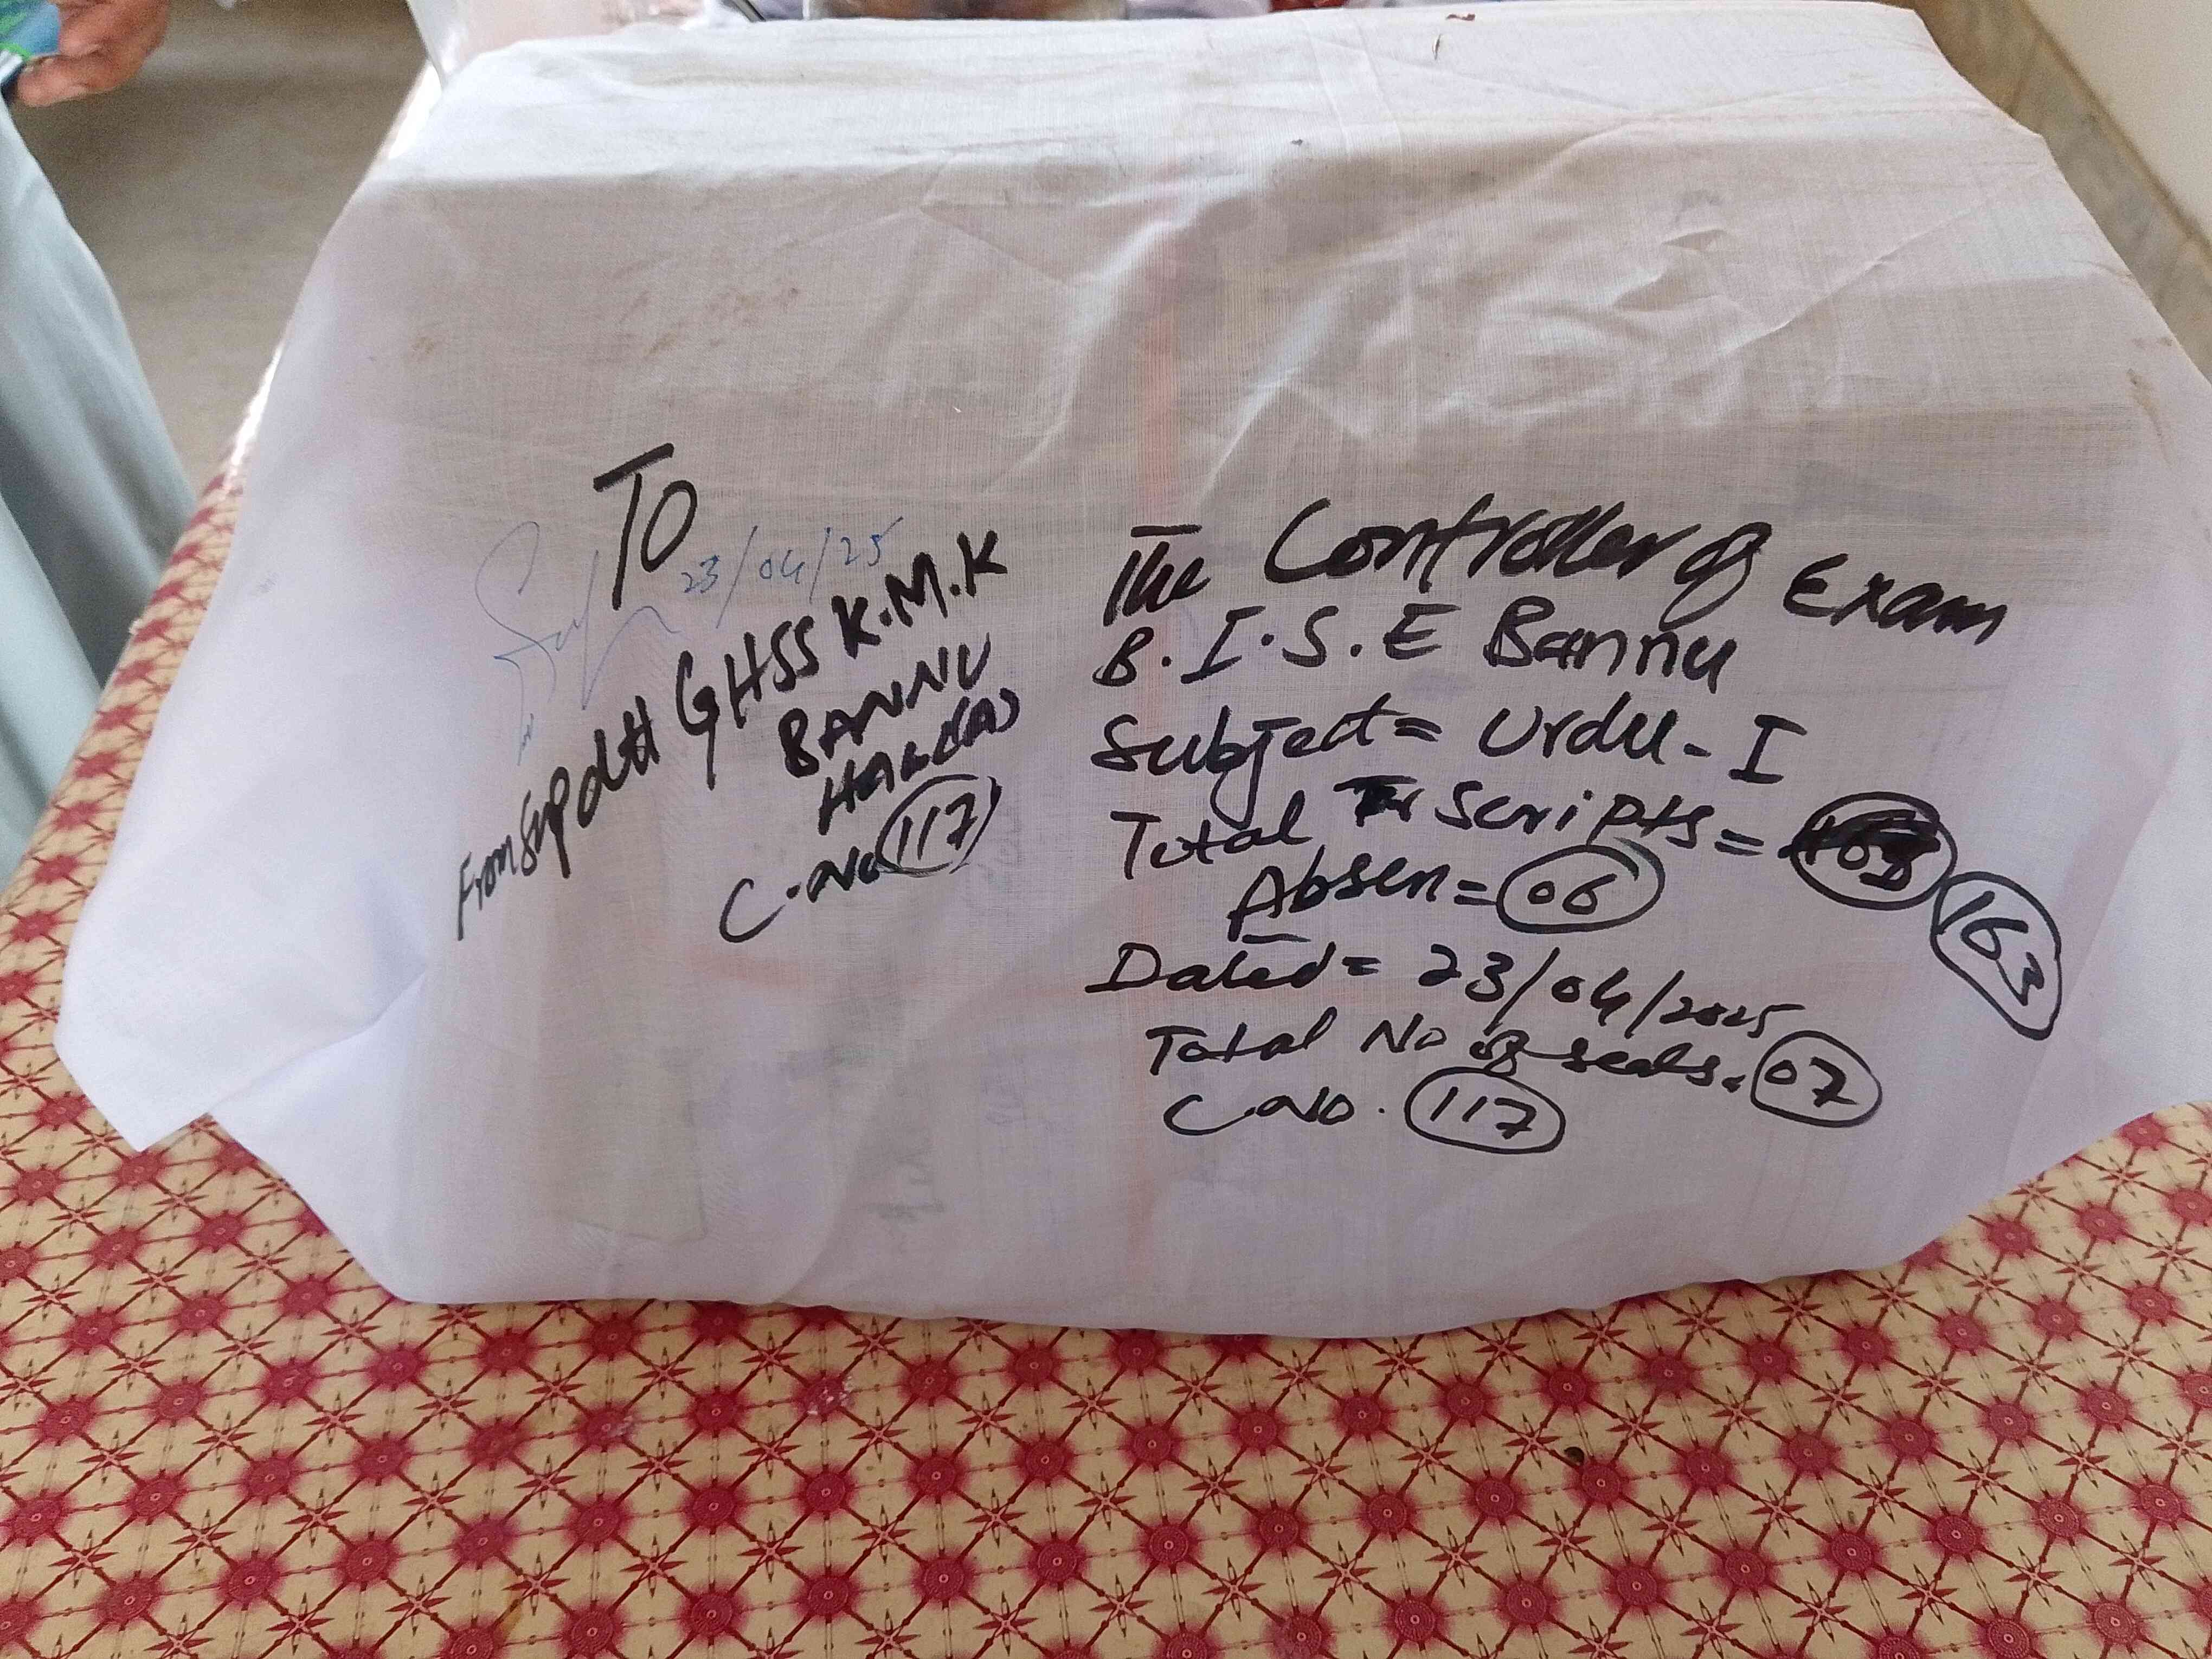 To
23/04/25
From Supdtt GHSS K.M.K
BANNU
HALL(A)
C.No 117
The Controller of Exam
B.I.S.E Bannu
Subject= Urdu-I
Total Scripts= 163
Absen= 06
Dated= 23/04/2025
Total No of seals. 07
C.No. 117